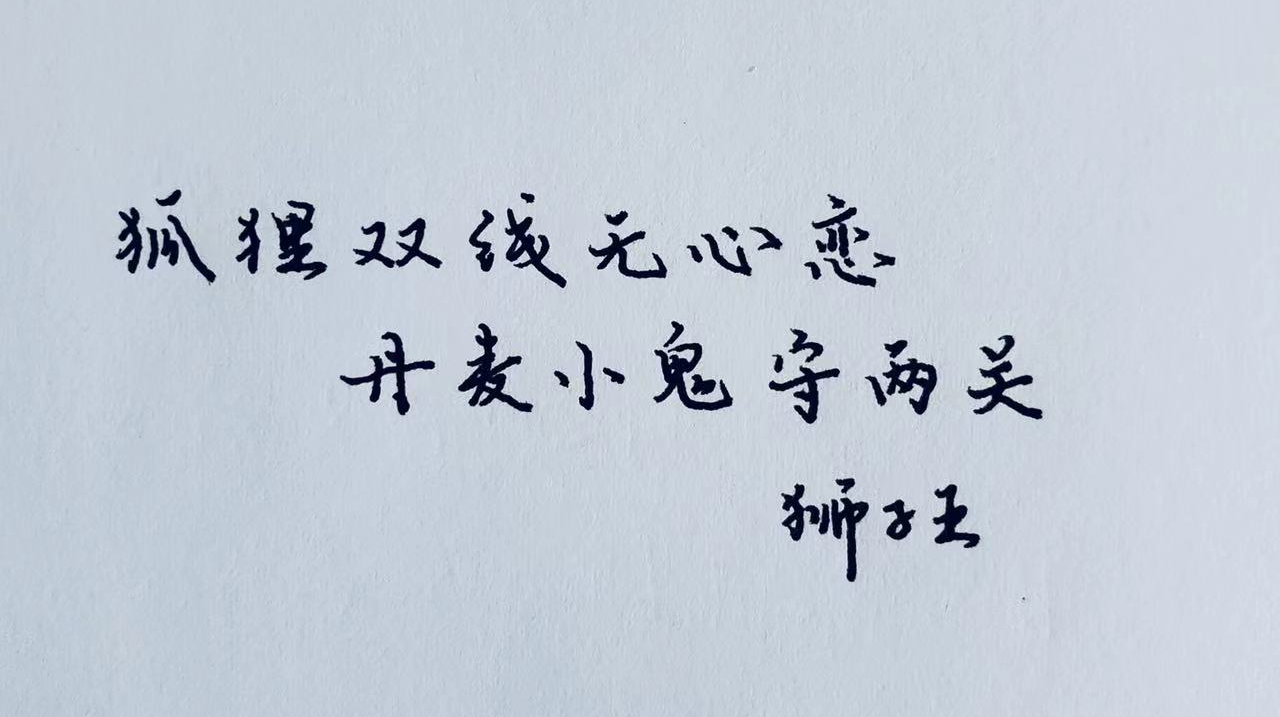 狐狸双线无心恋
丹麦小鬼守两关
狮子王